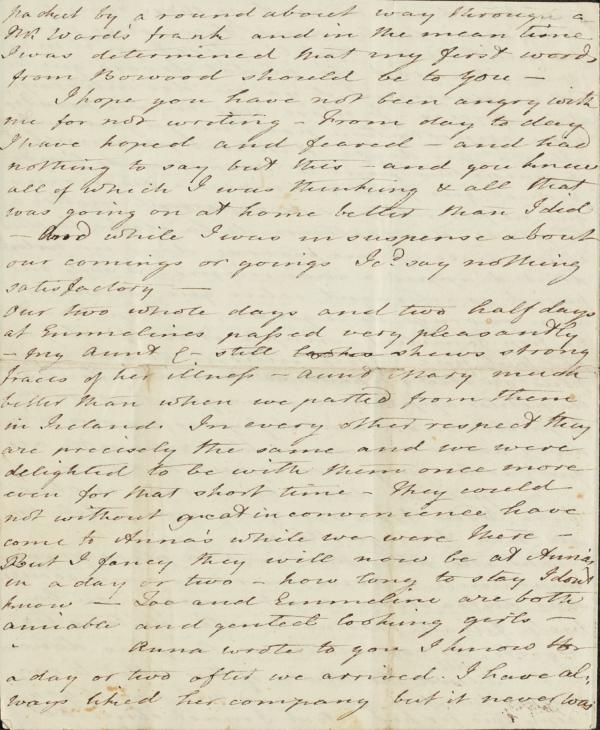 packet by a round about way through a
Mr Ward's frank and in the mean time
I was determined that my first words
from Bowood should be to you –
I hope you have not been angry with
me for not writing – From day to day
I have hoped and feared – and had
nothing to say but this – and you knew
all of which I was thinking & all that
was going on at home better than I did
– And while I was in suspense about
our comings or goings I cd say nothing
satisfactory —
Our two whole days and two half days
at Emmelines passed very pleasantly
– My Aunt E – still shews strong
traces of her illness – Aunt Mary much
better than when we parted from them
in Ireland. In every other respect they
are precisely the same and we were
delighted to be with them once more
even for that short time – They could
not without great inconvenience have
come to Anna's while we were there –
But I fancy they will now be at Anna's
in a day or two – how long to stay I dont
know — Zoe and Emmeline are both
amiable and genteel looking girls –
Anna wrote to you I know
a day or two after we arrived. I have al-
ways liked her company but it never was